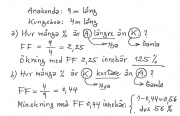 Anakonda: 9 m lång
Kungskobra: 4 m lång
a) Hur många % är A längre än K ?
Nya Gamla
FF = 9/4 = 2,25
Ökning med FF 2,25 innebär 125%
b) Hur många % är K kortare än A ?
Nya Gamla
FF = 4/9 = 0,44
Minskning med FF 0,44 innebär
1-0,44=0,56
dvs 56%